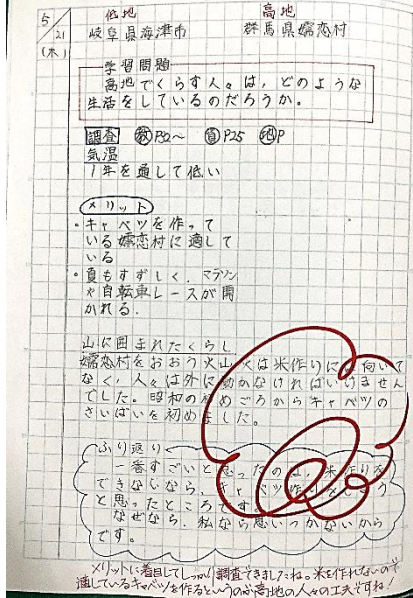 5/21
(木)
低地 高地
岐阜県海津市 群馬県嬬恋村
学習問題
高地でくらす人々は、どのような
生活をしているのだろうか。
調査 教P32〜 資P25 地P
気温
1年を通して低い
メリット
・キャベツを作って
いる嬬恋村に適して
いる
・夏もすずしく、マラソン
や自転車レースが開
かれる.
山に囲まれたくらし
嬬恋村をおおう火山 は米作りに 向いて
なく、人々は外に動かなければいけません
でした。昭和の初めごろからキャベツの
さいばいを初めました。
ふり返り
一番すごいと思ったのは、米作りが
できないなら、キャベツ作り
と思ったところです。
なぜなら、私なら思いつかないから
です。
メリットに着目してしっかり調査できましたね。米を作れないので
適しているキャベツを作るというのが高地の人々の工夫ですね!